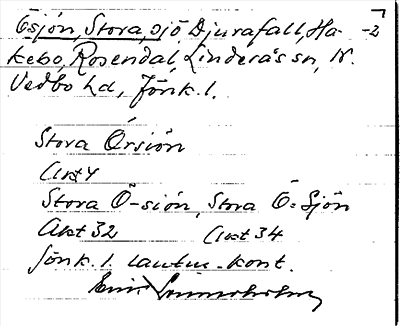 Ösjön, Stora, sjö Djurafall, Ha- -2
kebo, Rosendal, Linderås sn, N.
Vedbo hd, Jönk. l.
Stora Örsiön
Akt 4
Stora Ö-siön, Stora Ö=Sjön
Akt 32 Akt 34
Jönk. l. lantm.-kont.